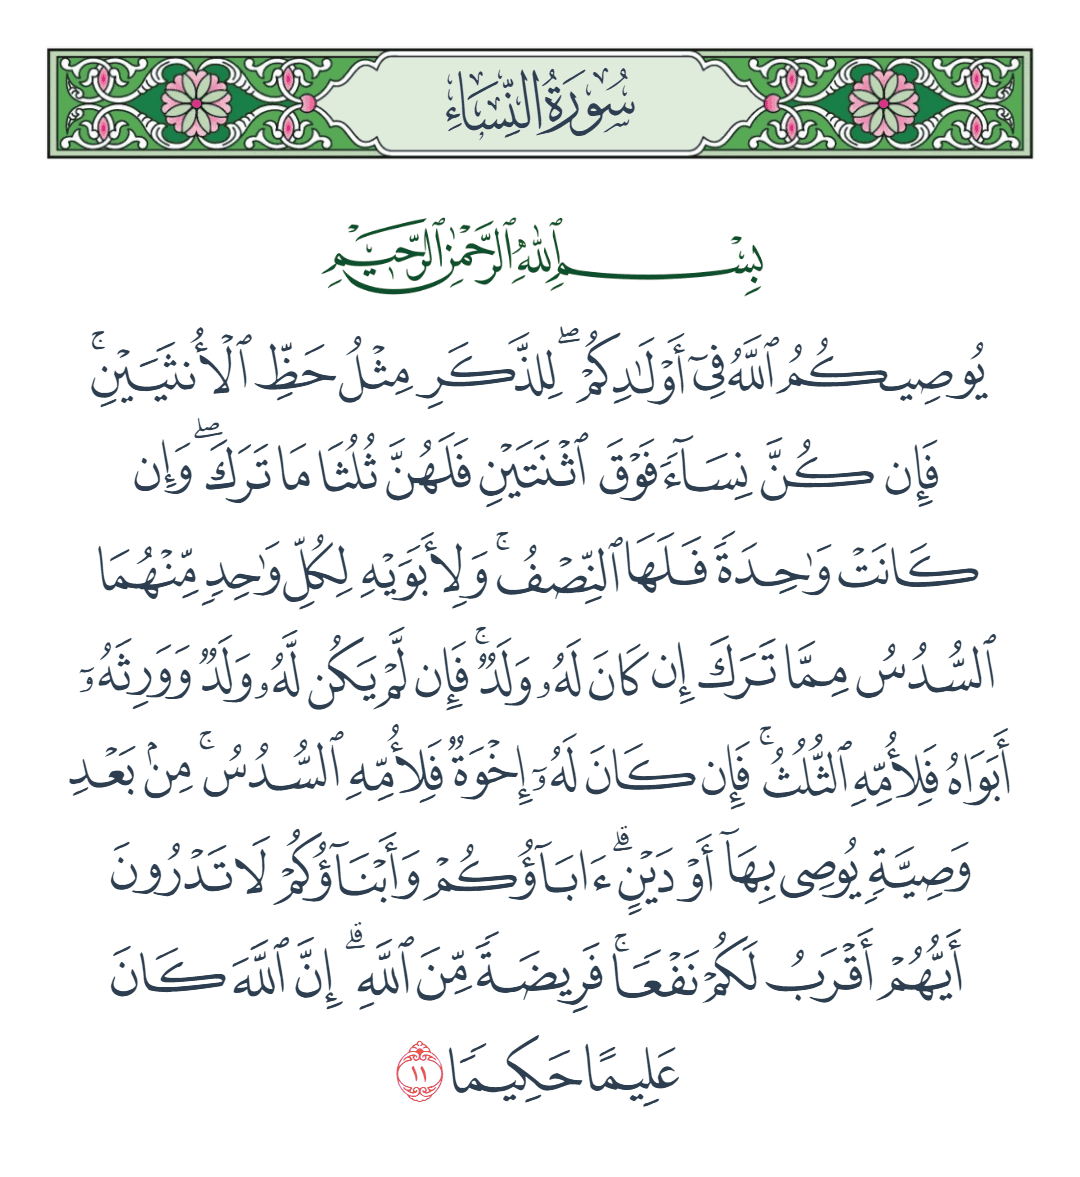 سُورَةُ النِّسَاءِ
بِسْمِ ٱللَّهِ ٱلرَّحْمَٰنِ ٱلرَّحِيمِ
يُوصِيكُمُ ٱللَّهُ فِىٓ أَوْلَٰدِكُمْ ۖ لِلذَّكَرِ مِثْلُ حَظِّ ٱلْأُنثَيَيْنِ ۚ
فَإِن كُنَّ نِسَآءً فَوْقَ ٱثْنَتَيْنِ فَلَهُنَّ ثُلُثَا مَا تَرَكَ ۖ وَإِن
كَانَتْ وَٰحِدَةً فَلَهَا ٱلنِّصْفُ ۚ وَلِأَبَوَيْهِ لِكُلِّ وَٰحِدٍ مِّنْهُمَا
ٱلسُّدُسُ مِمَّا تَرَكَ إِن كَانَ لَهُۥ وَلَدٌ ۚ فَإِن لَّمْ يَكُن لَّهُۥ وَلَدٌ وَوَرِثَهُۥٓ
أَبَوَاهُ فَلِأُمِّهِ ٱلثُّلُثُ ۚ فَإِن كَانَ لَهُۥٓ إِخْوَةٌ فَلِأُمِّهِ ٱلسُّدُسُ ۚ مِنۢ بَعْدِ
وَصِيَّةٍ يُوصِى بِهَآ أَوْ دَيْنٍ ۗ ءَابَآؤُكُمْ وَأَبْنَآؤُكُمْ لَا تَدْرُونَ
أَيُّهُمْ أَقْرَبُ لَكُمْ نَفْعًا ۚ فَرِيضَةً مِّنَ ٱللَّهِ ۗ إِنَّ ٱللَّهَ كَانَ
عَلِيمًا حَكِيمًا ١١